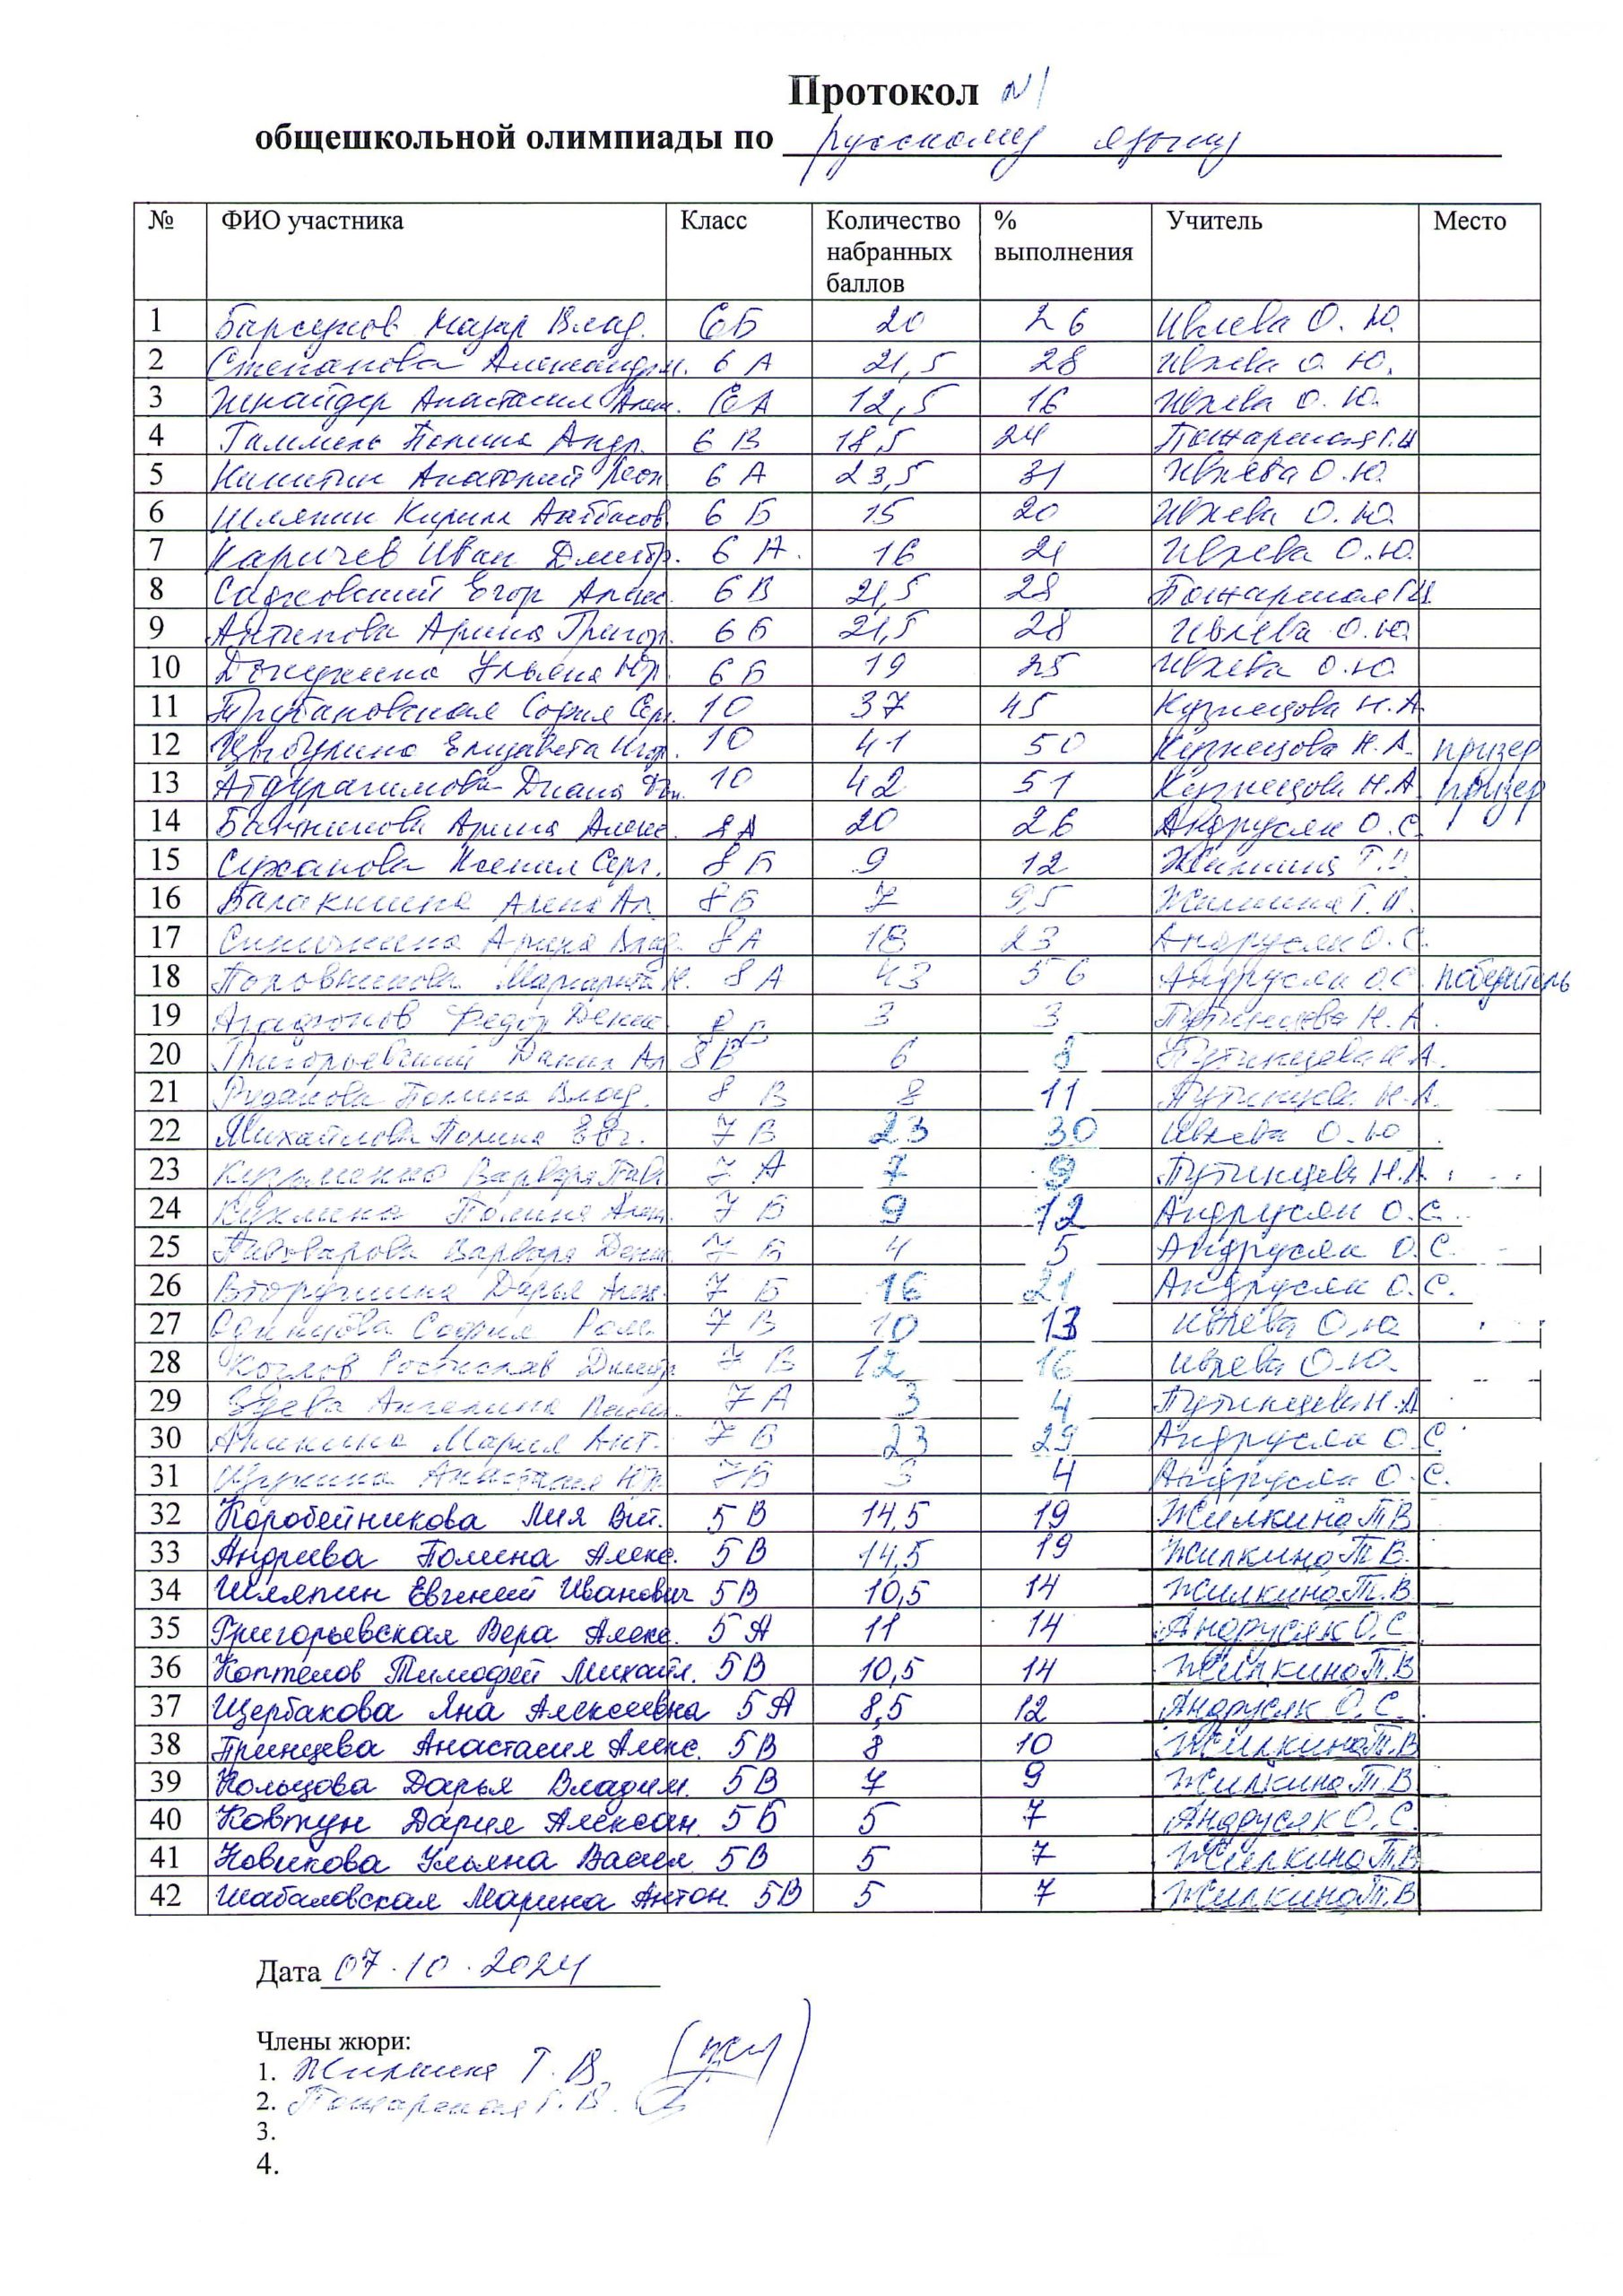 Протокол №1
общешкольной олимпиады по русскому языку
№ ФИО участника Класс Количество набранных баллов % выполнения Учитель Место
1 Барсуков Назар Влад. 6Б 20 26 Ивлева О. Ю.
2 Степанова Александра. 6 А 21,5 28 Ивлева О. Ю.
3 Шнайдер Анастасия 6А 12,5 16 Ивлева О. Ю.
4 Полина Андр. 6 В 18,5 24 Пожарская
5 Никитин Анатолий Леон 6 А 23,5 31 Ивлева О.Ю.
6 Шляпин Кирилл 6 Б 15 20 Ивлева О. Ю.
7 Каричев Иван Дмитр. 6 А. 16 21 Ивлева О.Ю.
8 Садковский Егор Алекс. 6 В 21,5 28 Пожарская
9 Антипова Арина Григор. 6 Б 21,5 28 Ивлева О.Ю.
10 Ульяна Юр. 6 Б 19 25 Ивлева О.Ю.
11 София Серг. 10 37 45 Кузнецова Н.А.
12 Цыбулина Елизавета Игор. 10 41 50 Кузнецова Н.А. призер
13 Абдурагимова Диана 10 42 51 Кузнецова Н.А. призер
14 Арина Алекс. 8А 20 26 Андрусяк О.С.
15 Суханова Ксения Серг. 8 Б 9 12 Жилкина Т.
16 Балакшина Алена Ал. 8Б 7 9,5 Жилкина Т.
17 Синичкина Арина Влад. 8А 18 23 Андрусяк О.С.
18 Половникова Маргарита 8 А 43 56 Андрусяк О.С. победитель
19 Агафонов Федор Денис. 3 3 Путинцева Н.А.
20 Григорьевский Данил Ал 8В 6 8 Путинцева Н.А.
21 Рудакова Полина Влад. 8 В 8 11 Путинцева Н.А.
22 Михайлова Полина Евг. 7 В 23 30 Ивлева О.Ю
23 Кузьменко Варвара Павл 7 А 7 9 Путинцева Н.А.
24 Кухлина Полина Алек. 7 Б 9 12 Андрусяк О.С.
25 Пивоварова Варвара Денис. 7 Б 4 5 Андрусяк О.С.
26 Вторушина Дарья Алек. 7 Б 16 21 Андрусяк О.С.
27 Одинцова София Ром. 7 В 10 13 Ивлева О.Ю.
28 Козлов Ростислав Дмитр 7 В 12 16 Ивлева О.Ю.
29 Ангелина 7 А 3 4 Путинцева Н.А
30 Аникина Мария Ант. 7 Б 23 29 Андрусяк О.С.
31 Щукина Анастасия Юр. 7Б 3 4 Андрусяк О.С.
32 Коробейникова Лия Вит. 5 В 14,5 19 Жилкина Т В
33 Андреева Полина Алекс. 5 В 14,5 19 Жилкина Т.В.
34 Шляпин Евгений Иванович 5 В 10,5 14 Жилкина Т.В
35 Григорьевская Вера Алекс. 5 А 11 14 Андрусяк О.С
36 Коптелов Тимофей Михайл. 5В 10,5 14 Жилкина Т.В
37 Щербакова Яна Алексеевна 5 А 8,5 12 Андрусяк О.С.
38 Гринцева Анастасия Алекс. 5В 8 10 Жилкина Т.В
39 Кольцова Дарья Владим. 5 В 7 9 Жилкина Т.В.
40 Ковтун Дария Алексан. 5 Б 5 7 Андрусяк О.С.
41 Новикова Ульяна Васил 5В 5 7 Жилкина Т.В
42 Шабаловская Марина Антон. 5В 5 7 Жилкина Т.В
Дата 07.10.2024
Члены жюри:
1. Жилкина Т. В.
2. Пожарская Г.В.
3.
4.